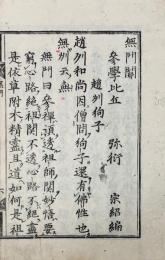 無門關
參學比丘 弥衍 宗紹編
趙州狗子
趙州和尚因僧問狗子還有佛性也
無州云無
無門曰參禪須透祖師關妙悟要
窮心路絶祖關不透心路不絶盡
是依草附木精靈且道如何是祖